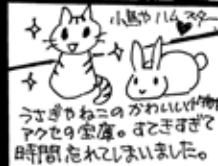 小鳥やハムスター
うさぎやねこのかわいい小物
アクセの宝庫。すてきすぎて
時間忘れてしまいました。